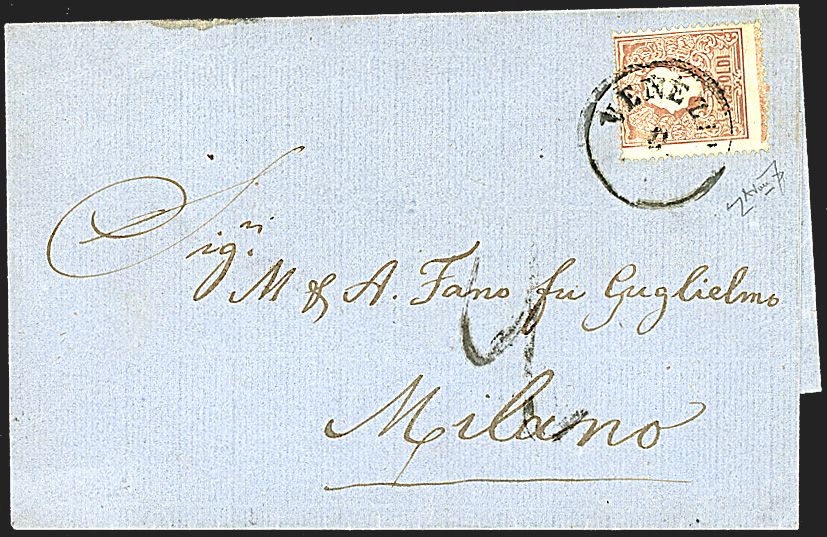 SOLDI
VENEZI
Sig.ri
M & A. Fano fu Guglielmo
4
Milano